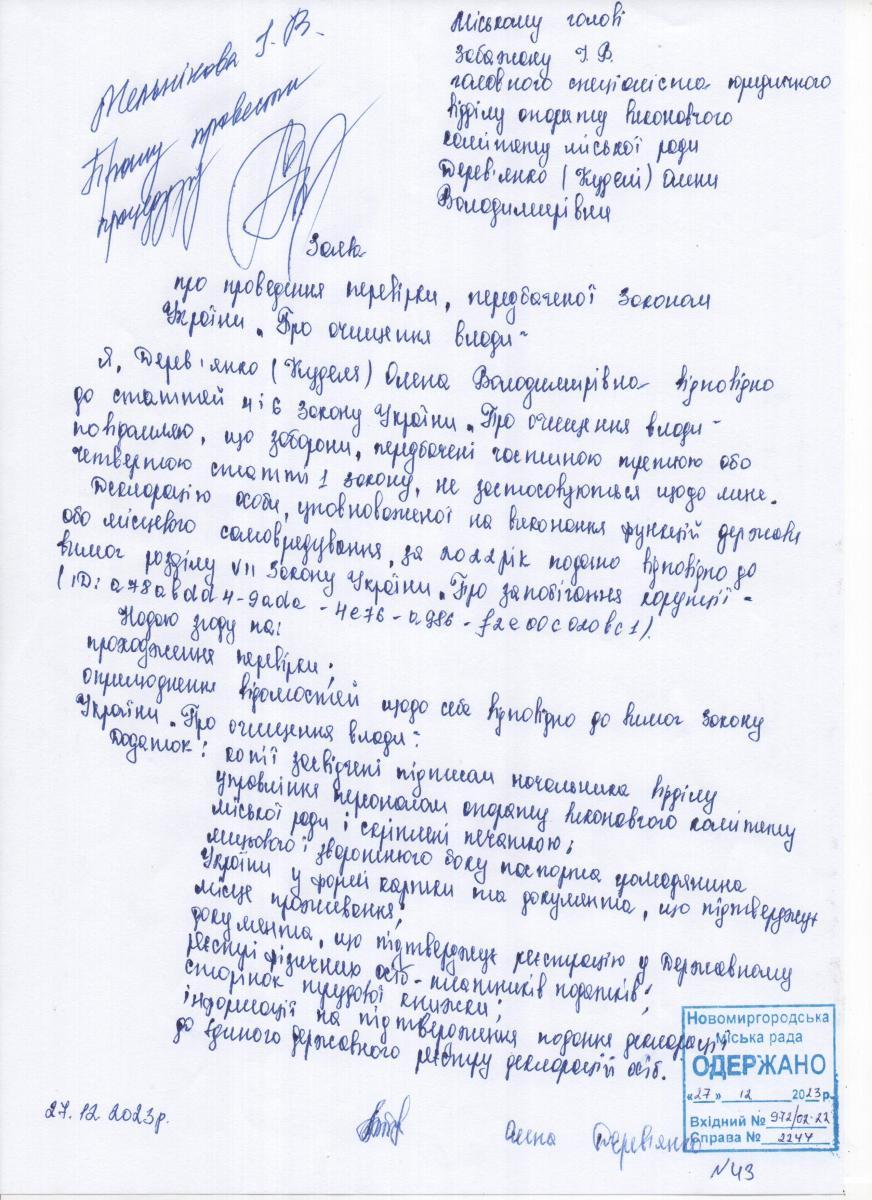 Мельнікова І. В.
Прошу провести
процедуру
Міському голові
Забажану І. В.
головного спеціаліста юридичного
відділу апарату виконавчого
комітету міської ради
Дерев'янко (Куделі) Олени
Володимирівни
Заява
про проведення перевірки, передбаченої Законом
України „Про очищення влади"
Я, Дерев'янко (Куделя) Олена Володимирівна відповідно
до статтей 4 і 6 Закону України „Про очищення влади"
повідомляю, що заборони, передбачені частиною третьою або
четвертою статті 1 Закону, не застосовуються щодо мене.
Декларацію особи, уповноваженої на виконання функцій держави
або місцевого самоврядування, за 2022 рік подано відповідно до
вимог розділу VII Закону України „Про запобігання корупції"
(ID: a78abdd4-9ada-4e76-a986-f2e00c020bc1).
Надаю згоду на:
проходження перевірки;
оприлюднення відомостей щодо себе відповідно до вимог Закону
України „Про очищення влади":
Додаток: копії засвідчені підписом начальника відділу
управління персоналом апарату виконавчого комітету
міської ради і скріплені печаткою;
лицьового і зворотнього боку паспорта громадянина
України у формі картки та документа, що підтверджує
місце проживання;
документа, що підтверджує реєстрацію у Державному
реєстрі фізичних осіб-платників податків;
сторінок трудової книжки;
інформації на підтвердження подання декларації
до Єдиного державного реєстру декларацій осіб.
Новомиргородська
міська рада
ОДЕРЖАНО
«27» 12 2023 р.
Вхідний № 972/02-22
Справа № 2247
27.12.2023р.
Олена Дерев'янко
N43